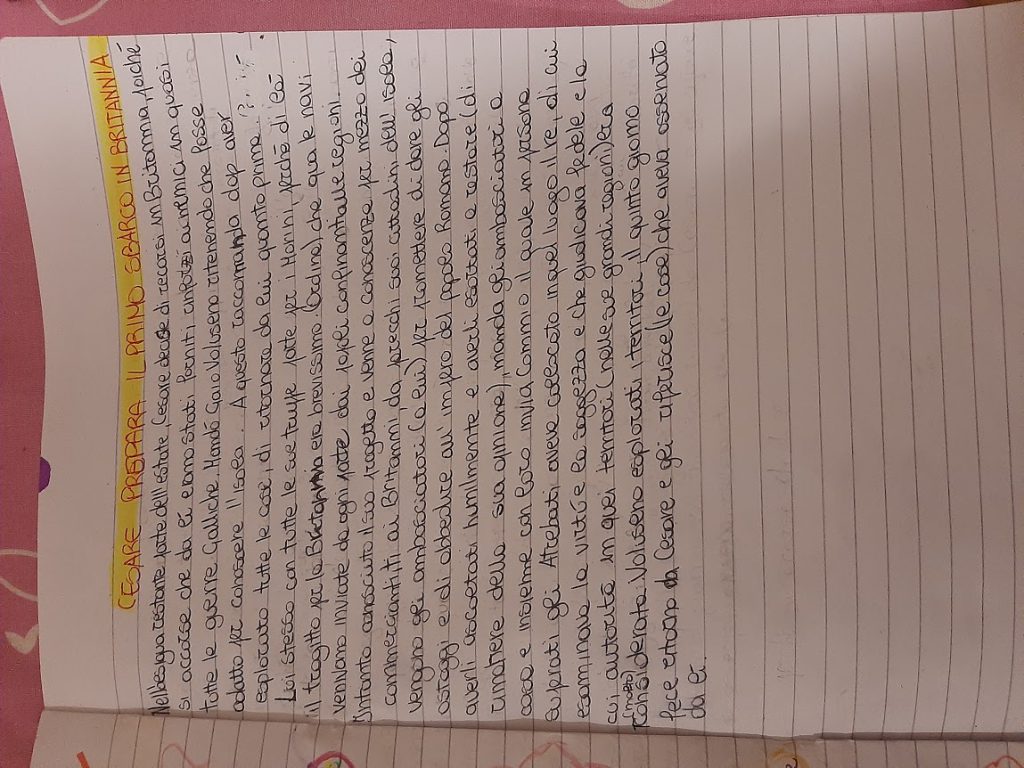 CESARE PREPARA IL PRIMO SBARCO IN BRITANNIA
Nell'esigua restante parte dell'estate, Cesare decide di recarsi in Britannia, poiché
si accorse che da lì erano stati forniti rinforzi ai nemici in quasi
tutte le guerre Galliche. Mandò Gaio Voluseno ritenendo che fosse
adatto per conoscere l'isola. A questo raccomanda dop aver
esplorato tutte le cose, di ritornare da lui quanto prima.
Lui stesso con tutte le sue truppe parte per i Morini, perché di là
il tragitto per la Britannia era brevissimo. Ordina che qua le navi
vengano inviate da ogni parte dai popoli confinanti alle regioni.
Intanto conosciuto il suo progetto e venne a conoscenza per mezzo dei
commercianti ai Britanni, da parecchi suoi cittadini dell'isola,
vengono gli ambasciatori (a lui) per promettere di dare gli
ostaggi e di obbedire all'impero del popolo Romano. Dopo
averli ascoltati umilmente e averli esortati a restare (di
rimanere della sua opinione), manda gli ambasciatori a
casa e insieme con loro invia Commio il quale in persona
superati gli Atrebati, aveva collocato in quel luogo il re, di cui
esaminava la virtù e la saggezza e che giudicava fedele e la
cui autorità in quei territori (nelle sue grandi ragioni) era
considerata. Voluseno esplorati i territori il quinto giorno
fece ritorno da Cesare e gli riferisce (le cose) che aveva osservato
da lì.